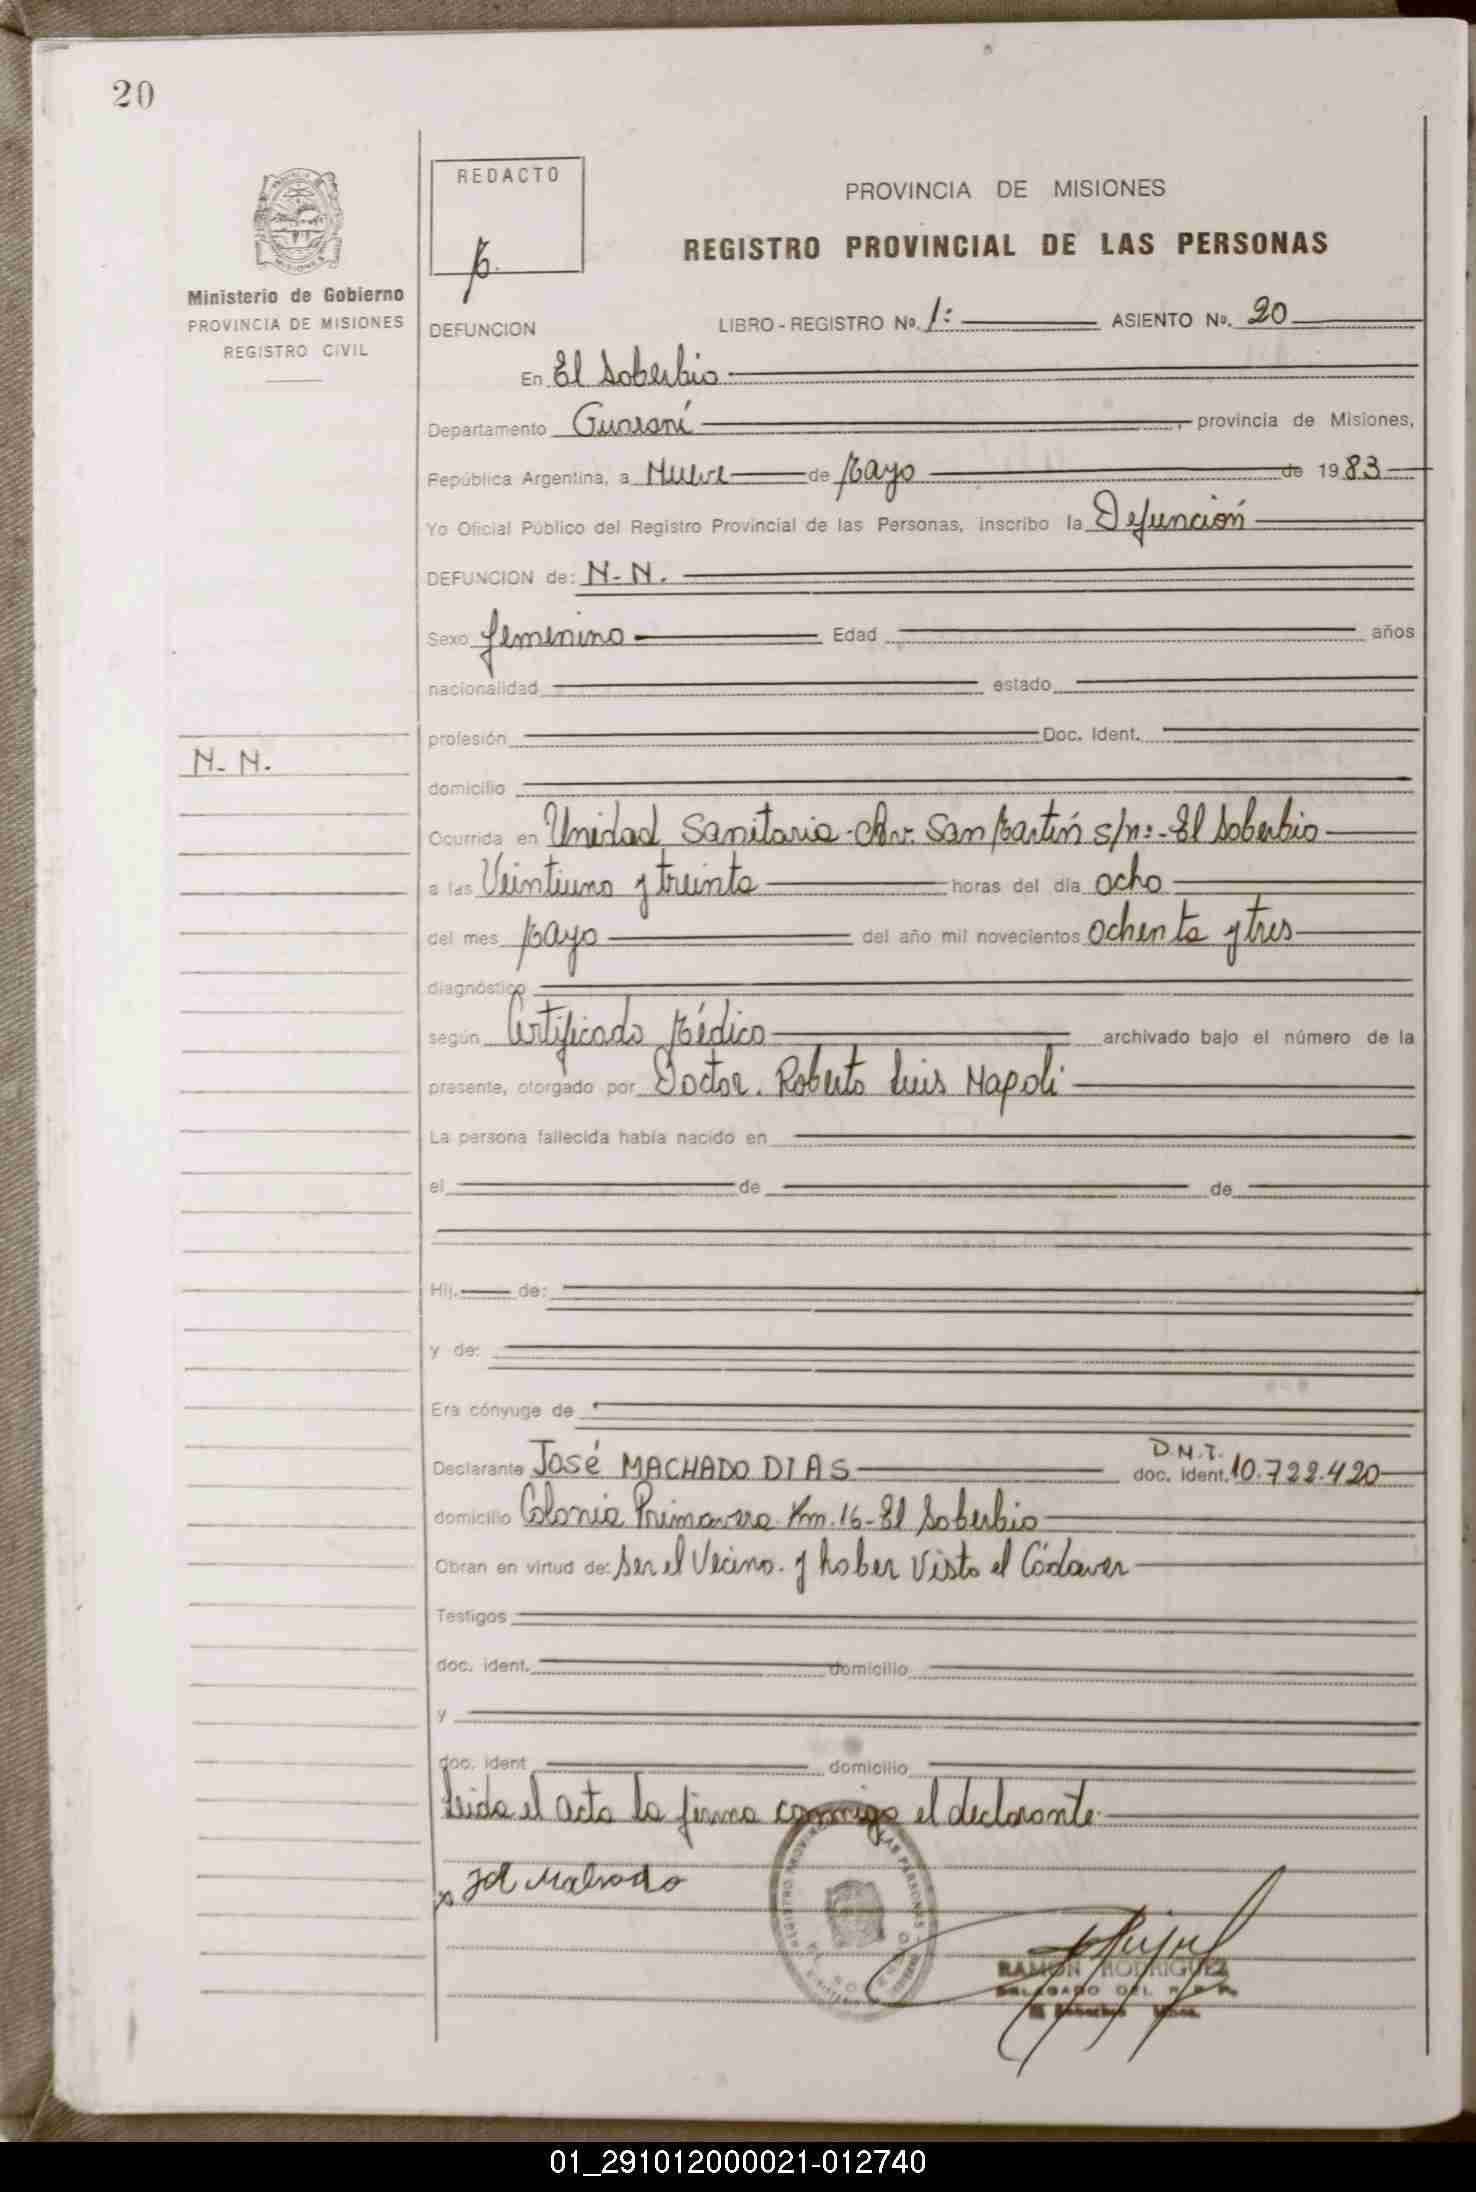 20
REDACTO
PROVINCIA DE MISIONES
REGISTRO PROVINCIAL DE LAS PERSONAS
Ministerio de Gobierno
PROVINCIA DE MISIONES
REGISTRO CIVIL
DEFUNCION LIBRO - REGISTRO No. 1: ASIENTO No. 20
En El Soberbio
Departamento Guaraní, provincia de Misiones,
República Argentina, a Nueve de Mayo de 1983
Yo Oficial Público del Registro Provincial de las Personas, inscribo la Defunción
DEFUNCION de: N-N.
Sexo femenino Edad años
nacionalidad estado
profesión Doc. Ident.
N-N.
domicilio
Ocurrida en Unidad Sanitaria-Av. San Martín s/n:-El Soberbio
a las Veintiuno y treinta horas del día ocho
del mes Mayo del año mil novecientos ochenta y tres
diagnóstico
según Certificado Médico archivado bajo el número de la
presente, otorgado por Doctor. Roberto Luis Napoli
La persona fallecida había nacido en
el de de
Hij. de:
y de:
Era cónyuge de
Declarante José MACHADO DIAS D.N.I. doc. ident. 10.722.420
domicilio Colonia Primavera Km. 16-El Soberbio
Obran en virtud de: Ser el Vecino. y haber Visto el Cádaver
Testigos
doc. ident. domicilio
y
doc. ident domicilio
Leida el acta la firma conmigo el declarante-
RAMON RODRIGUEZ
DELEGADO DEL R. P. P.
El Soberbio Mnes.
01_291012000021-012740